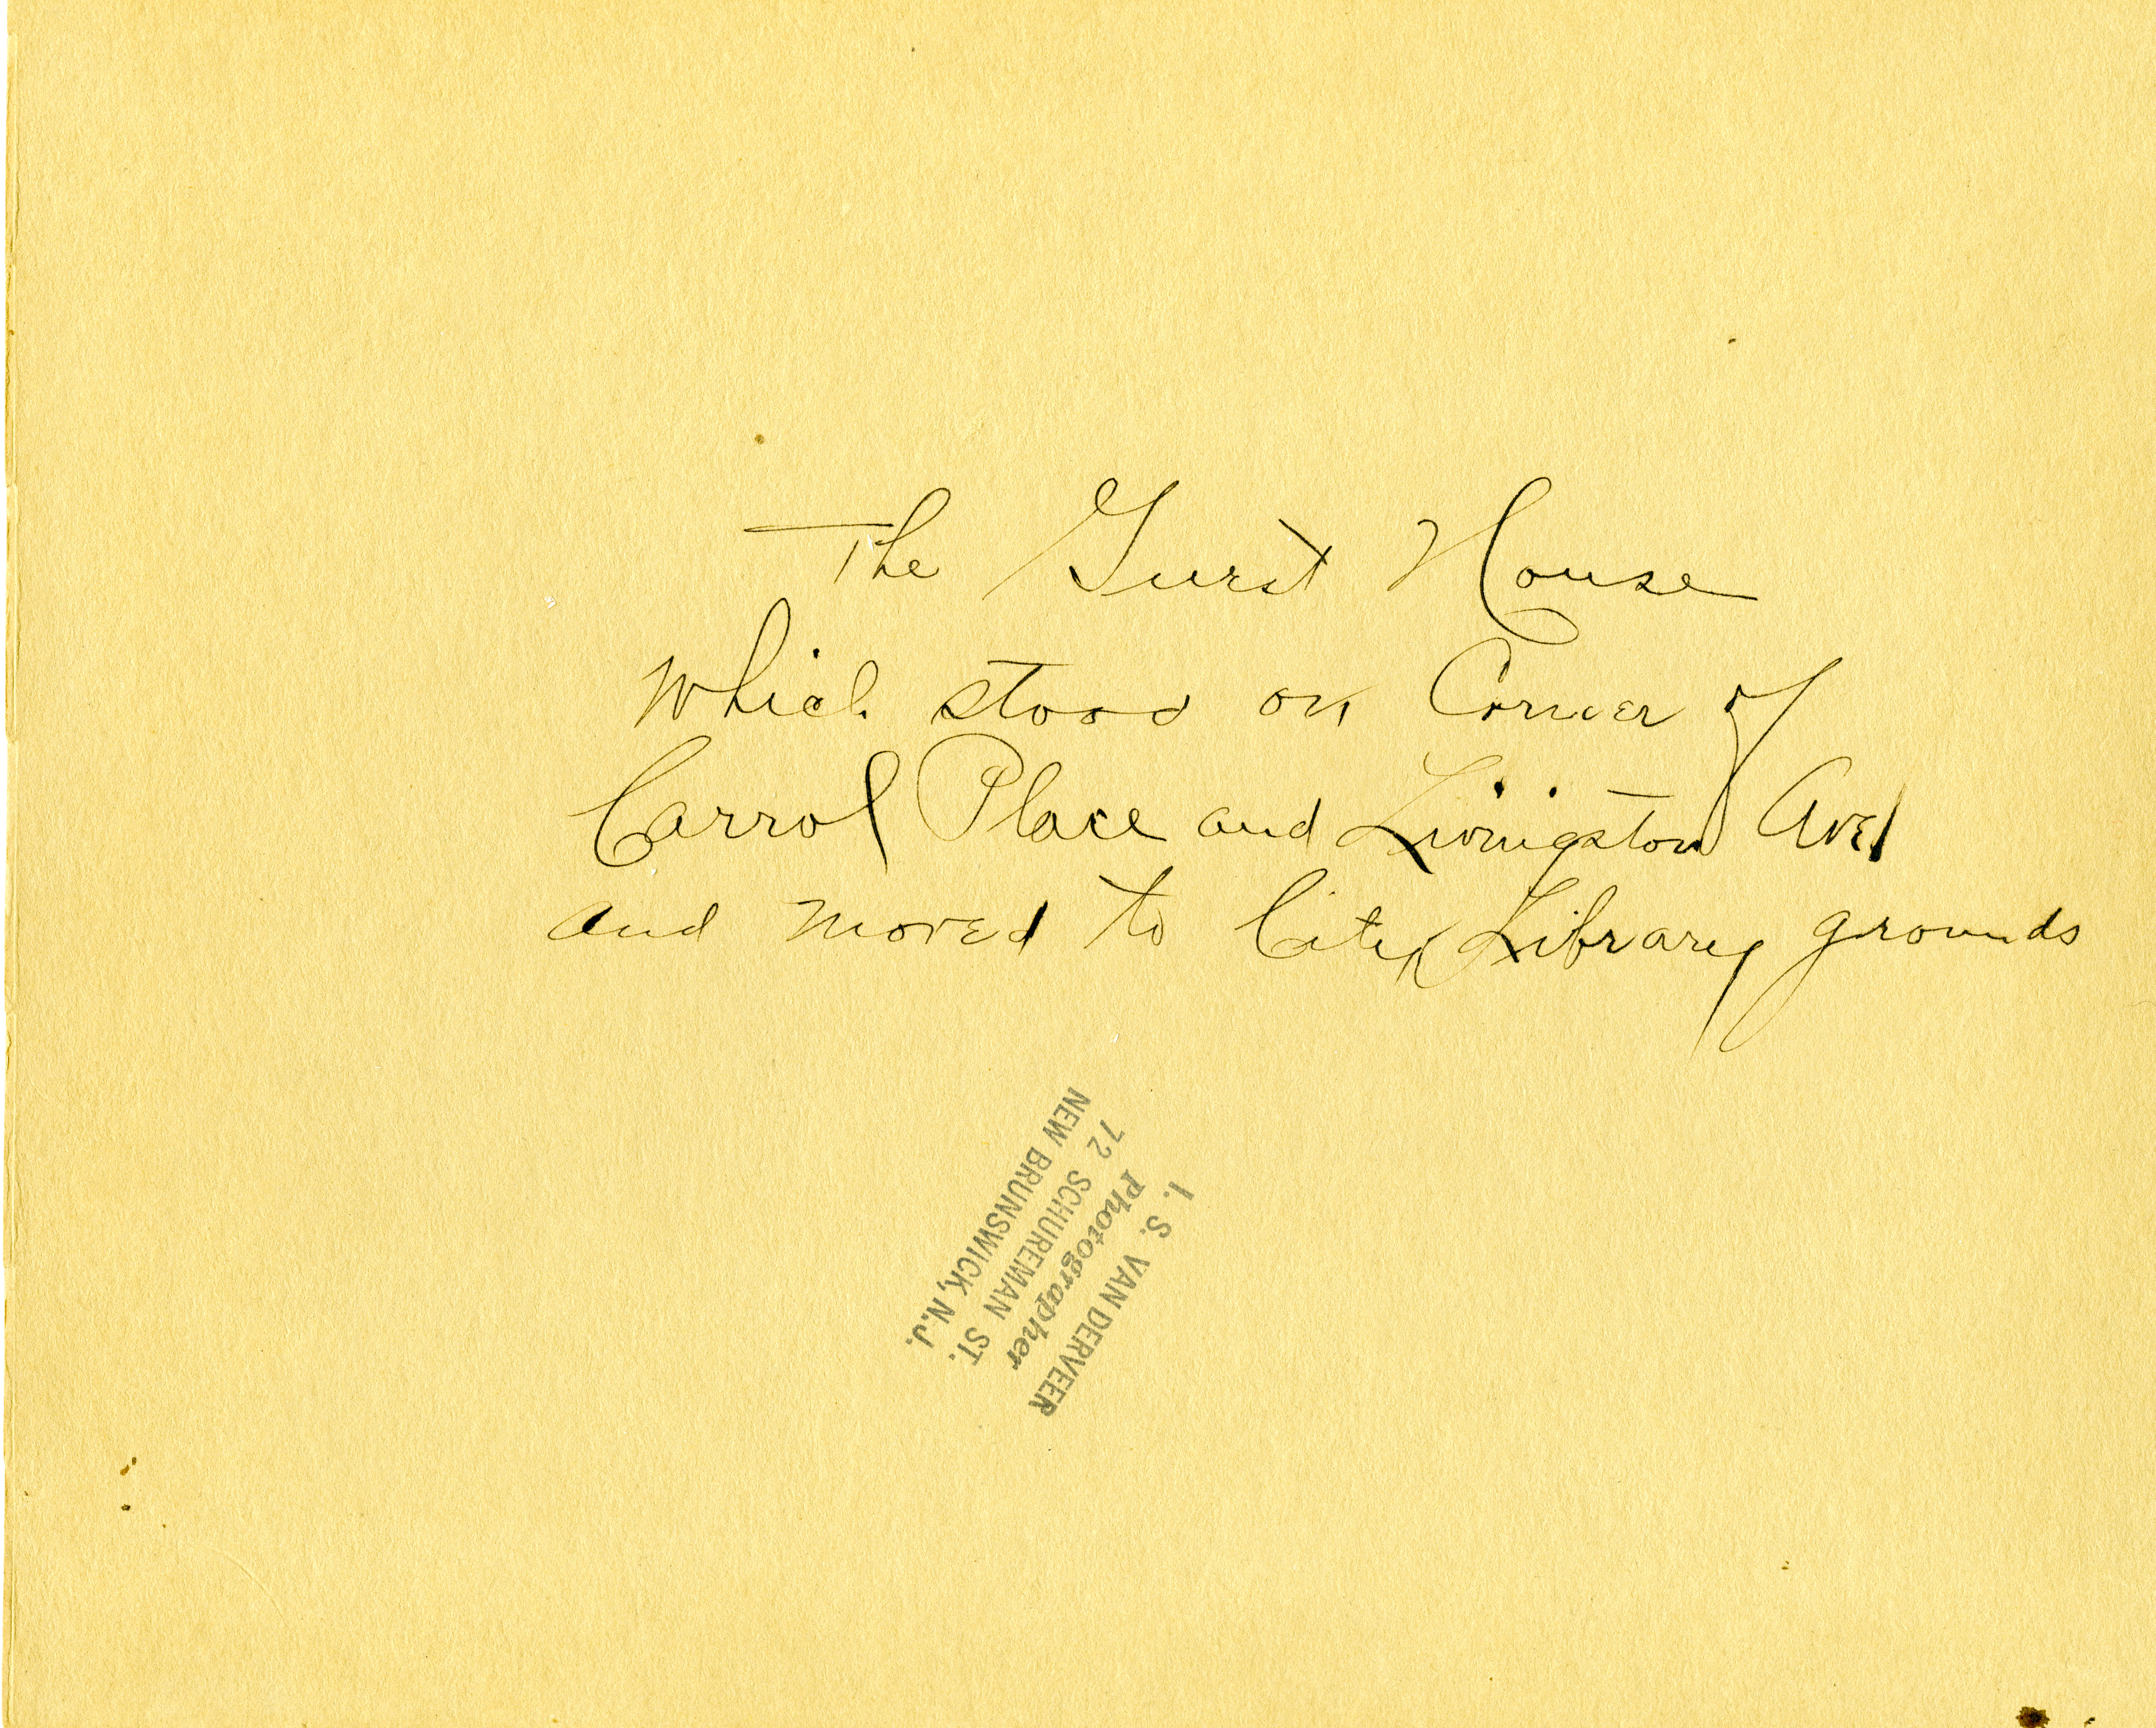 The Guest House
which stood on Corner of
Carrol Place and Livingston Ave
and moved to City Library grounds
I. S. VAN DERVEER
Photographer
72 SCHUREMAN ST.
NEW BRUNSWICK, N.J.